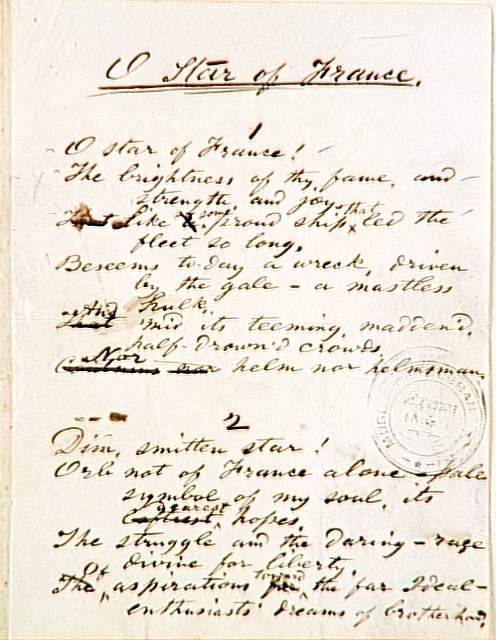 O Star of France.
1
O star of France!
The brightness of thy fame, and
strength, and joy,
Like some proud ship that led the
fleet so long,
Beseems to-day a wreck, driven
by the gale – a mastless
hulk;
And 'mid its teeming, madden'd,
half-drown'd crowds,
Nor helm nor helmsman.
2
Dim, smitten star!
Orb not of France alone – pale
symbol of my soul, its
dearest hopes,
The struggle and the daring – rage
divine for liberty,
Of aspirations toward the far Ideal –
enthusiasts' dreams of brotherhood,